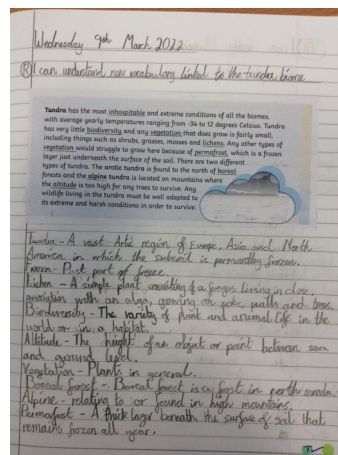 Wednesday 9th March 2022
(R) I can understand new vocabulary linked to the tundra biome
Tundra has the most inhospitable and extreme conditions of all the biomes,
with average yearly temperatures ranging from -34 to 12 degrees Celsius. Tundra
has very little biodiversity and any vegetation that does grow is fairly small,
including things such as shrubs, grasses, mosses and lichens. Any other types of
vegetation would struggle to grow here because of permafrost, which is a frozen
layer just underneath the surface of the soil. There are two different
types of tundra. The arctic tundra is found to the north of boreal
forests and the alpine tundra is located on mountains where
the altitude is too high for any trees to survive. Any
wildlife living in the tundra must be well adapted to
its extreme and harsh conditions in order to survive.
Tundra - A vast Artic region of Europe, Asia and North
America in which the subsoil is permantly frozen.
Frozen - Past part of freeze.
Lichen - A simple plant consisting of a fungus living in close
association with an alga, growing on walls and trees.
Biodiversity - The varity of plant and animal life in the
world or in a habitat.
Altitude - The height of an object or point between sea
and ground level.
Vegetation - Plants in general.
Boreal forest - Boreal forest is a
Alpine - relating to or found in high mountains.
Permafrost - A thick layer beneath the surface of soil that
remains frozen all year.